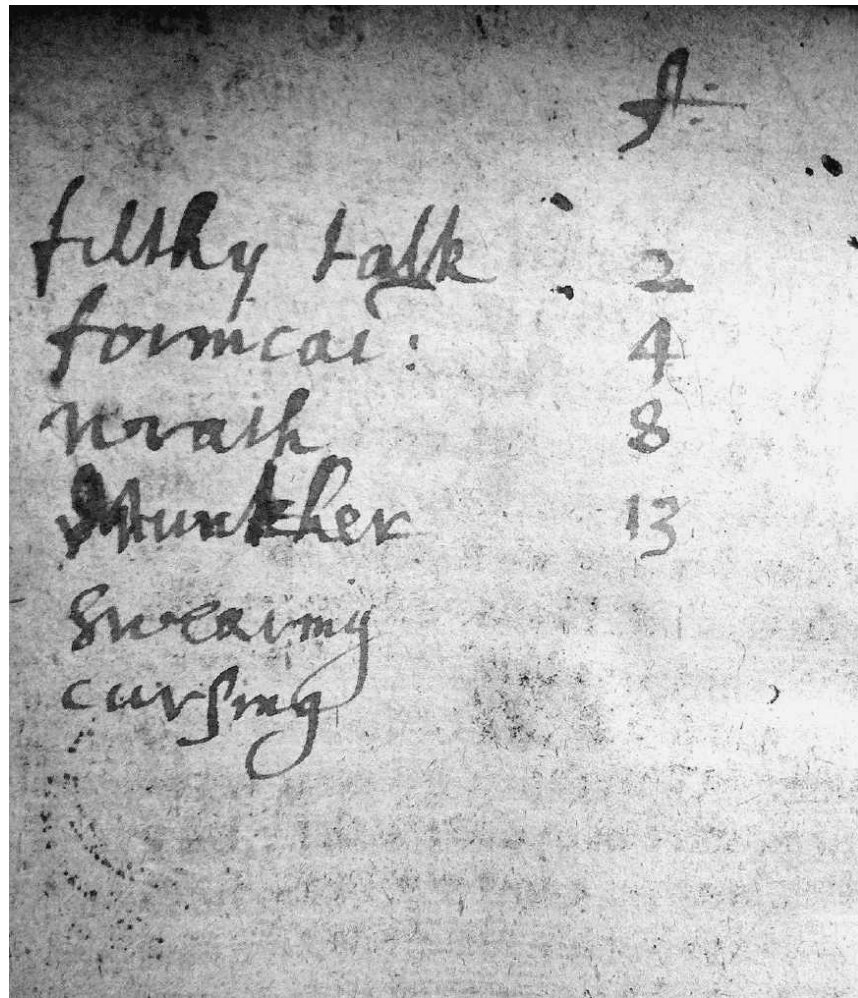 filthy talk 2
fornicai: 4
wrath 8
drunkher 13
swearing
cursing